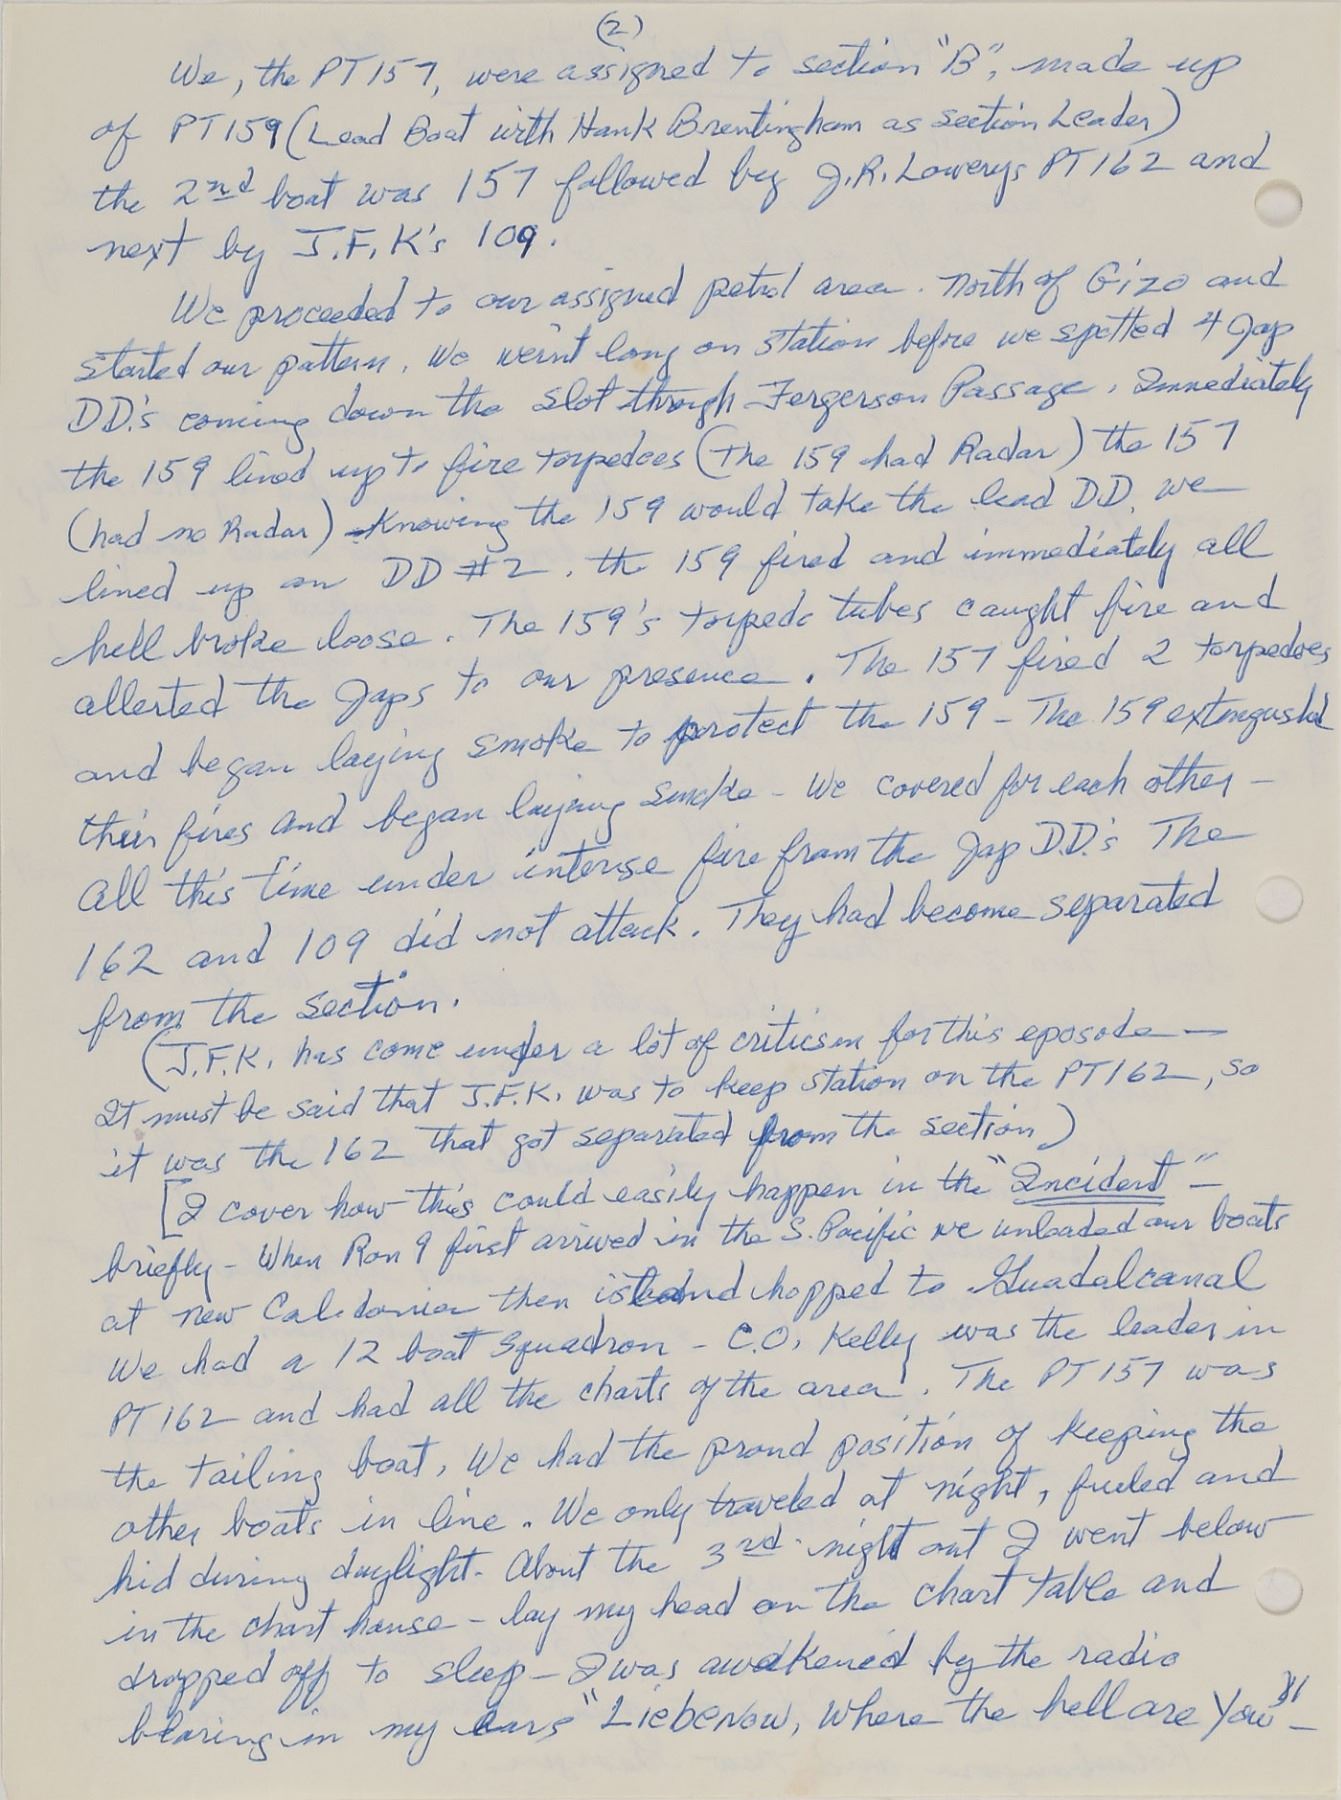 (2)
We, the PT157, were assigned to section "B", made up
of PT159 (Lead Boat with Hank Brentingham as section Leader)
the 2nd boat was 157 followed by J.R. Lowerys PT162 and
next by J.F.K's 109.
We proceeded to our assigned petrol area. North of Gizo and
started our pattern. We wern't long on station before we spotted 4 Jap
DD's coming down the slot through Fergerson Passage. Immediately
the 159 lined up to fire torpedoes (The 159 had Radar) the 157
(had no Radar) Knowing the 159 would take the lead DD, we
lined up on DD #2. the 159 fired and immediately all
hell broke loose. The 159's torpedo tubes caught fire and
allerted the Japs to our presence. The 157 fired 2 torpedoes
and began laying smoke to protect the 159 - The 159 extinguished
their fires and began laying smoke - We covered for each other -
All this time under intense fire from the Jap D.D.'s The
162 and 109 did not attack. They had become separated
from the section.
(J.F.K. has come under a lot of criticsm for this eposode -
It must be said that J.F.K. was to keep station on the PT162, so
it was the 162 that got separated from the section)
[I cover how this could easily happen in the "Incident" -
briefly - When Ron 9 first arrived in the S. Pacific we unloaded our boats
at New Caledonia then island hopped to Guadalcanal
We had a 12 boat Squadron - C.O. Kelly was the leader in
PT162 and had all the charts of the area. The PT157 was
the tailing boat, We had the proud position of keeping the
other boats in line. We only traveled at night, fueled and
hid during daylight. About the 3rd night out I went below
in the chart house - lay my head on the chart table and
dropped off to sleep - I was awakened by the radio
blaring in my ears "Liebenow, Where the hell are You" -